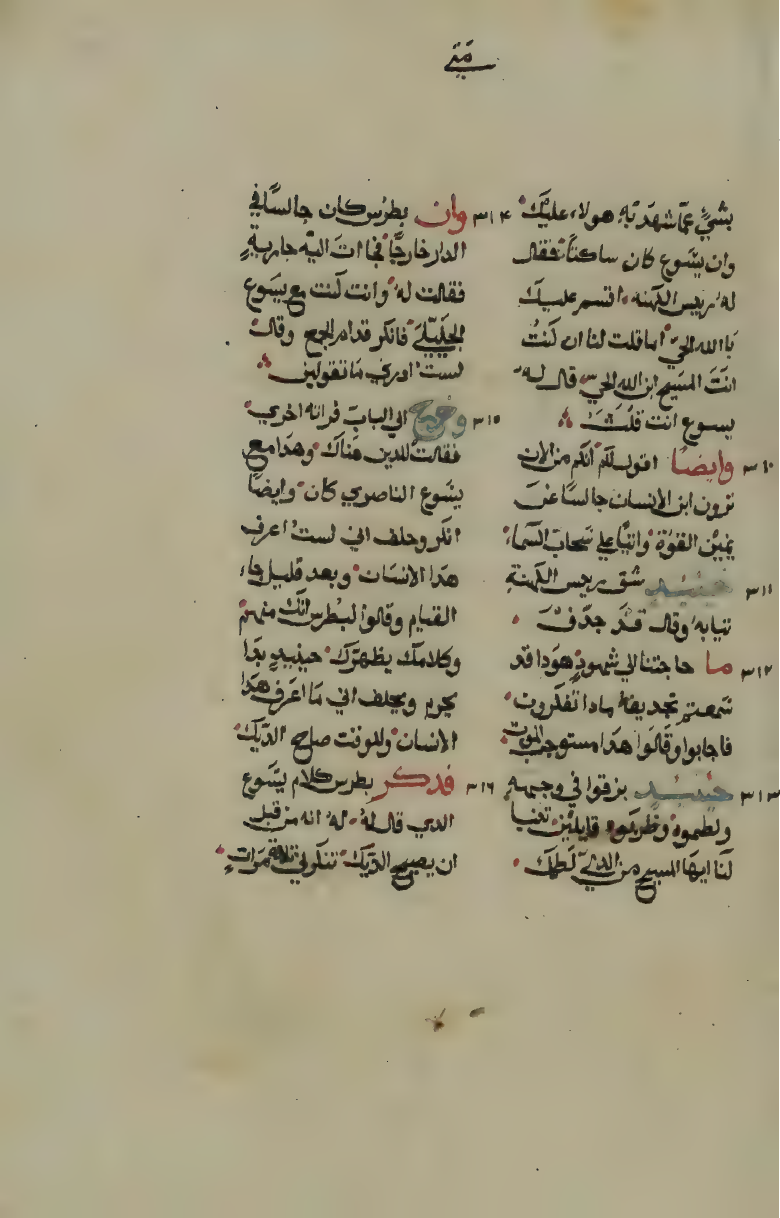 متى
بشيٍ عمّا شهدَ به هولاء عليك
وان يسوع كان ساكتاً فقال
له ريس الكهنه اقسم عليك
بالله الحي اما قلت لنا ان كنت
انت المسيح ابن الله الحي قال له
يسوع انت قلت
٣١٠ وايضا اقول لكم انكم من الان
ترون ابن الانسان جالسا عن
يمين القوة واتيا علي سحاب السماء
٣١١ حينيد شق ريس الكهنة
ثيابه وقال قد جدف
٣١٢ ما حاجتنا الي شهود هودا قد
سمعتم تجديفه مادا تفكرون
فاجابوا وقالوا هدا مستوجب الموت
٣١٣ حينيد بزقوا في وجهه
ولطموه وضربوه قايلين تنبا
لنا ايها المسيح من الدي لطمك
٣١٤ وان بطرس كان جالسا في
الدار خارجا فجاات اليه جاريه
فقالت له وانت كنت مع يسوع
الجليلي فانكر قدام الجمع وقال
لست ادري ما تقولين
٣١٥ وخرج الي الباب فراته اخري
فقالت للدين هناك وهدا مع
يسوع الناصري كان وايضا
انكر وحلف اني لست اعرف
هدا الانسان وبعد قليل جاء
القيام وقالوا لبطرس انك منهم
وكلامك يظهرك حينيد بدا
يحرم ويحلف اني ما اعرف هدا
الانسان وللوقت صاح الديك
٣١٦ فدكر بطرس كلام يسوع
الدي قال له انه من قبل
ان يصيح الديك تنكرني ثلاثة مرات